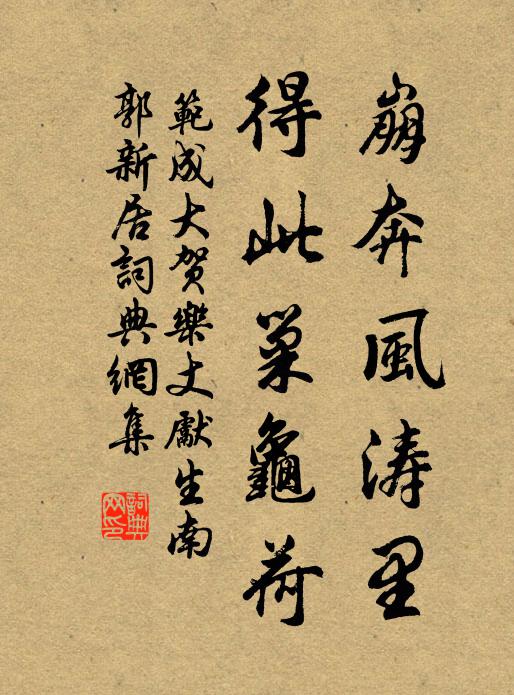 崩奔風濤里
得此巢龜荷
範成大賀樂丈獻生南
郭新居詞典網集
詞典
网印